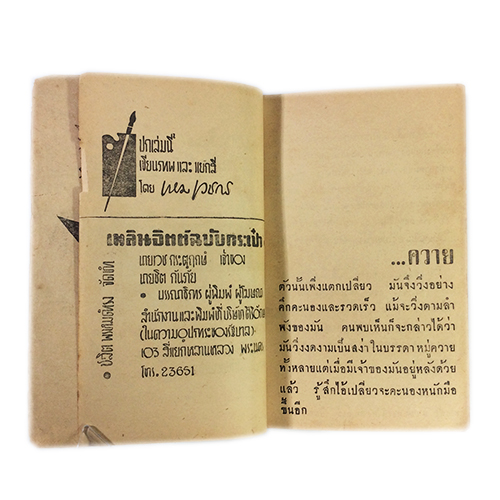 ปกเล่มนี้
เขียนภาพ และ แยกสี
โดย
เพลินจิตต์ฉบับกระเป๋า
นายเวช กระตุฤกษ์ เจ้าของ
นายชิต กันภัย
• บรรณาธิการ ผู้พิมพ์ ผู้โฆษณา
สำนักงานและพิมพ์ที่บริษัท
(ในความอุปการะของรัฐบาล)
๑๐๓ สี่แยกหลานหลวง
โทร. 23651
...ควาย
ตัวนั้นเพิ่งแตกเปลี่ยว มันจึงวิ่งอย่าง
คึกคะนองและรวดเร็ว แม้จะวิ่งตามลำ
พังของมัน คนพบเห็นก็จะกล่าวได้ว่า
มันวิ่งงดงามเป็นสง่า ในบรรดาหมู่ควาย
ทั้งหลายแต่เมื่อมีเจ้าของมันอยู่หลังด้วย
แล้ว รู้สึกไอ้เปลี่ยวจะคะนองหนักมือ
ขึ้นอีก